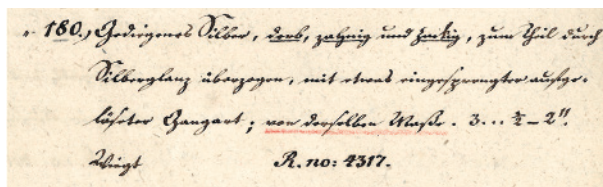 180.) Gediegenes Silber, derb, zahnig und hackig, zum Theil durch
Silberglanz überzogen, mit etwas eingesprengter aufge-
lößter Gangart; von derselben Maße. 3... ½ – 2".
Wiegt R. no: 4317.